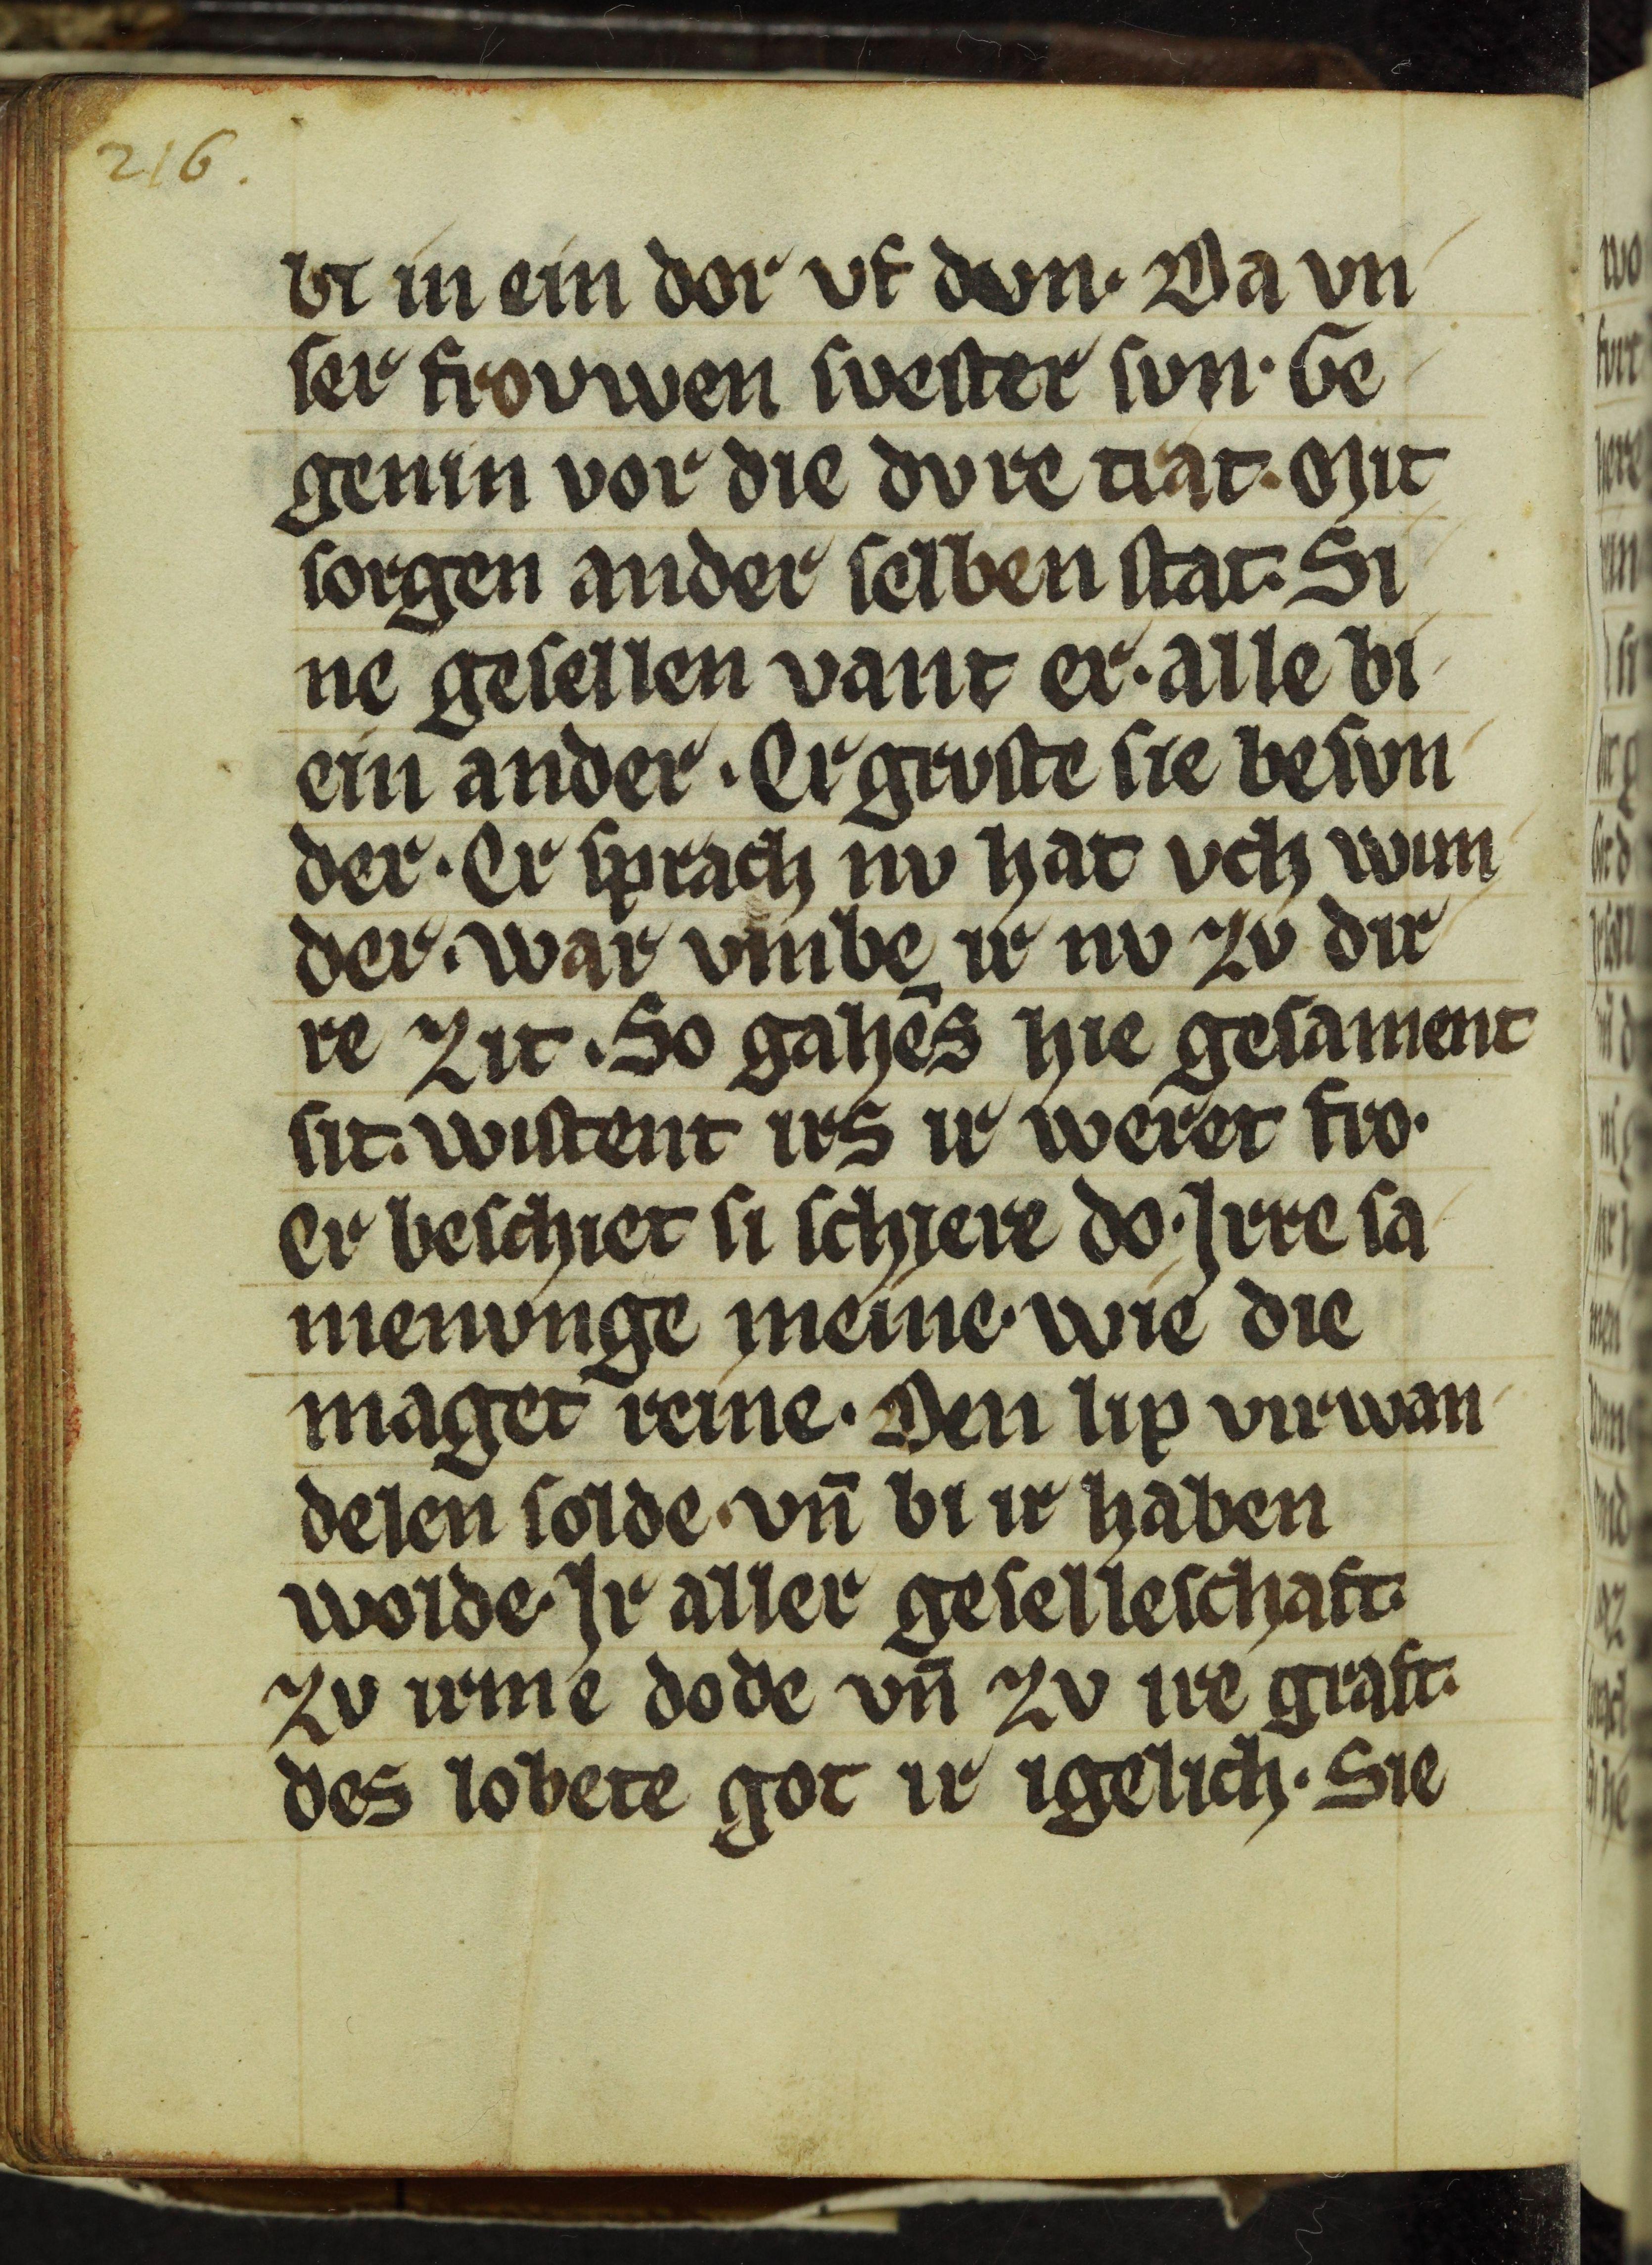 216.
bi in ein dor vf dvn. Da vn
ser frovwen svester svn. Ge
genin vor die dvre trat. Mit
sorgen ander selben stat. Si
ne gesellen vant er. alle bi
ein ander. Er grvste sie besvn
der. Er sprach nv hat vch wun
der. war vmbe ir nv zv dir
re zit. So gahēs hie gesament
sit. wistent irs ir weret fro.
Er beschiet si schiere do. Irre sa
menvnge meine. wie die
maget reine. Den lip virwan
delen solde. vn̄ bi ir haben
wolde. Ir aller geselleschaft.
Zv irme dode vn̄ zv ire graft.
des lobete got ir igelich. Sie